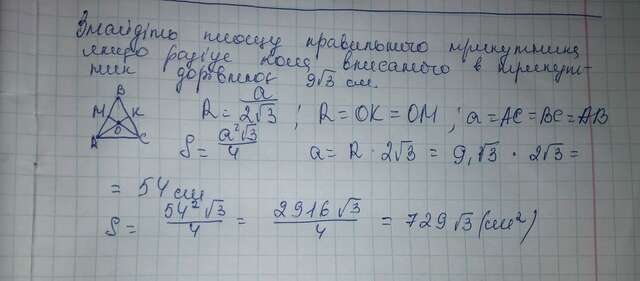 Знайдіть площу правильного трикутника,
якщо радіус кола вписаного в трикут-
ник дорівнює 9√3 см.
B
M K
O
A C
R = a/2√3 ; R = OK = OM ; a = AC = BC = AB
S = a²√3/4 a = R · 2√3 = 9√3 · 2√3 =
= 54 см
S = 54²√3/4 = 2916√3/4 = 729√3 (см²)